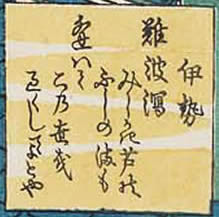 伊勢
難波瀉
みしかき芦の
ふしの間も
この世を
くしてよとや